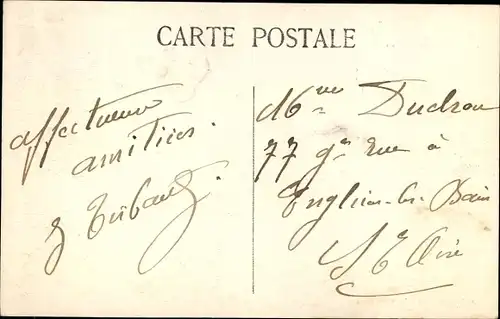 CARTE POSTALE
affectueuses
amitiés.
Mme
77 gde rue à
Enghien-les-Bains
S. & Oise